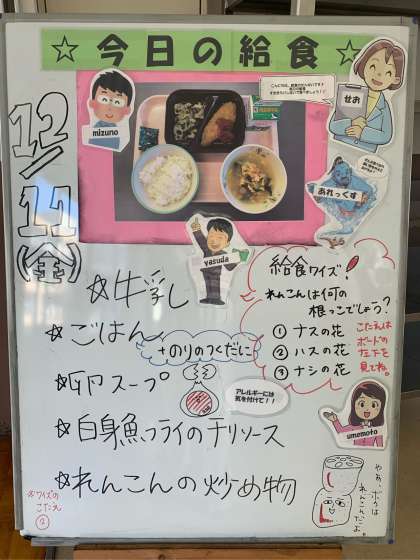 ☆今日の給食☆
12/11(金)
mizuno
せお
あれっくす
yasuda
☆牛乳
☆ごはん
+のりのつくだに
☆卵スープ
☆白身魚フライのチリソース
☆れんこんの炒め物
給食クイズ!
れんこんは何の
根っこでしょう?
① ナスの花
② ハスの花
③ ナシの花
こたえは
ボードの
左下を
見てね。
アレルギーには
気を付けて!!
umemoto
やあ、ボクは
れんこんだよ。
クイズの
こたえ
②